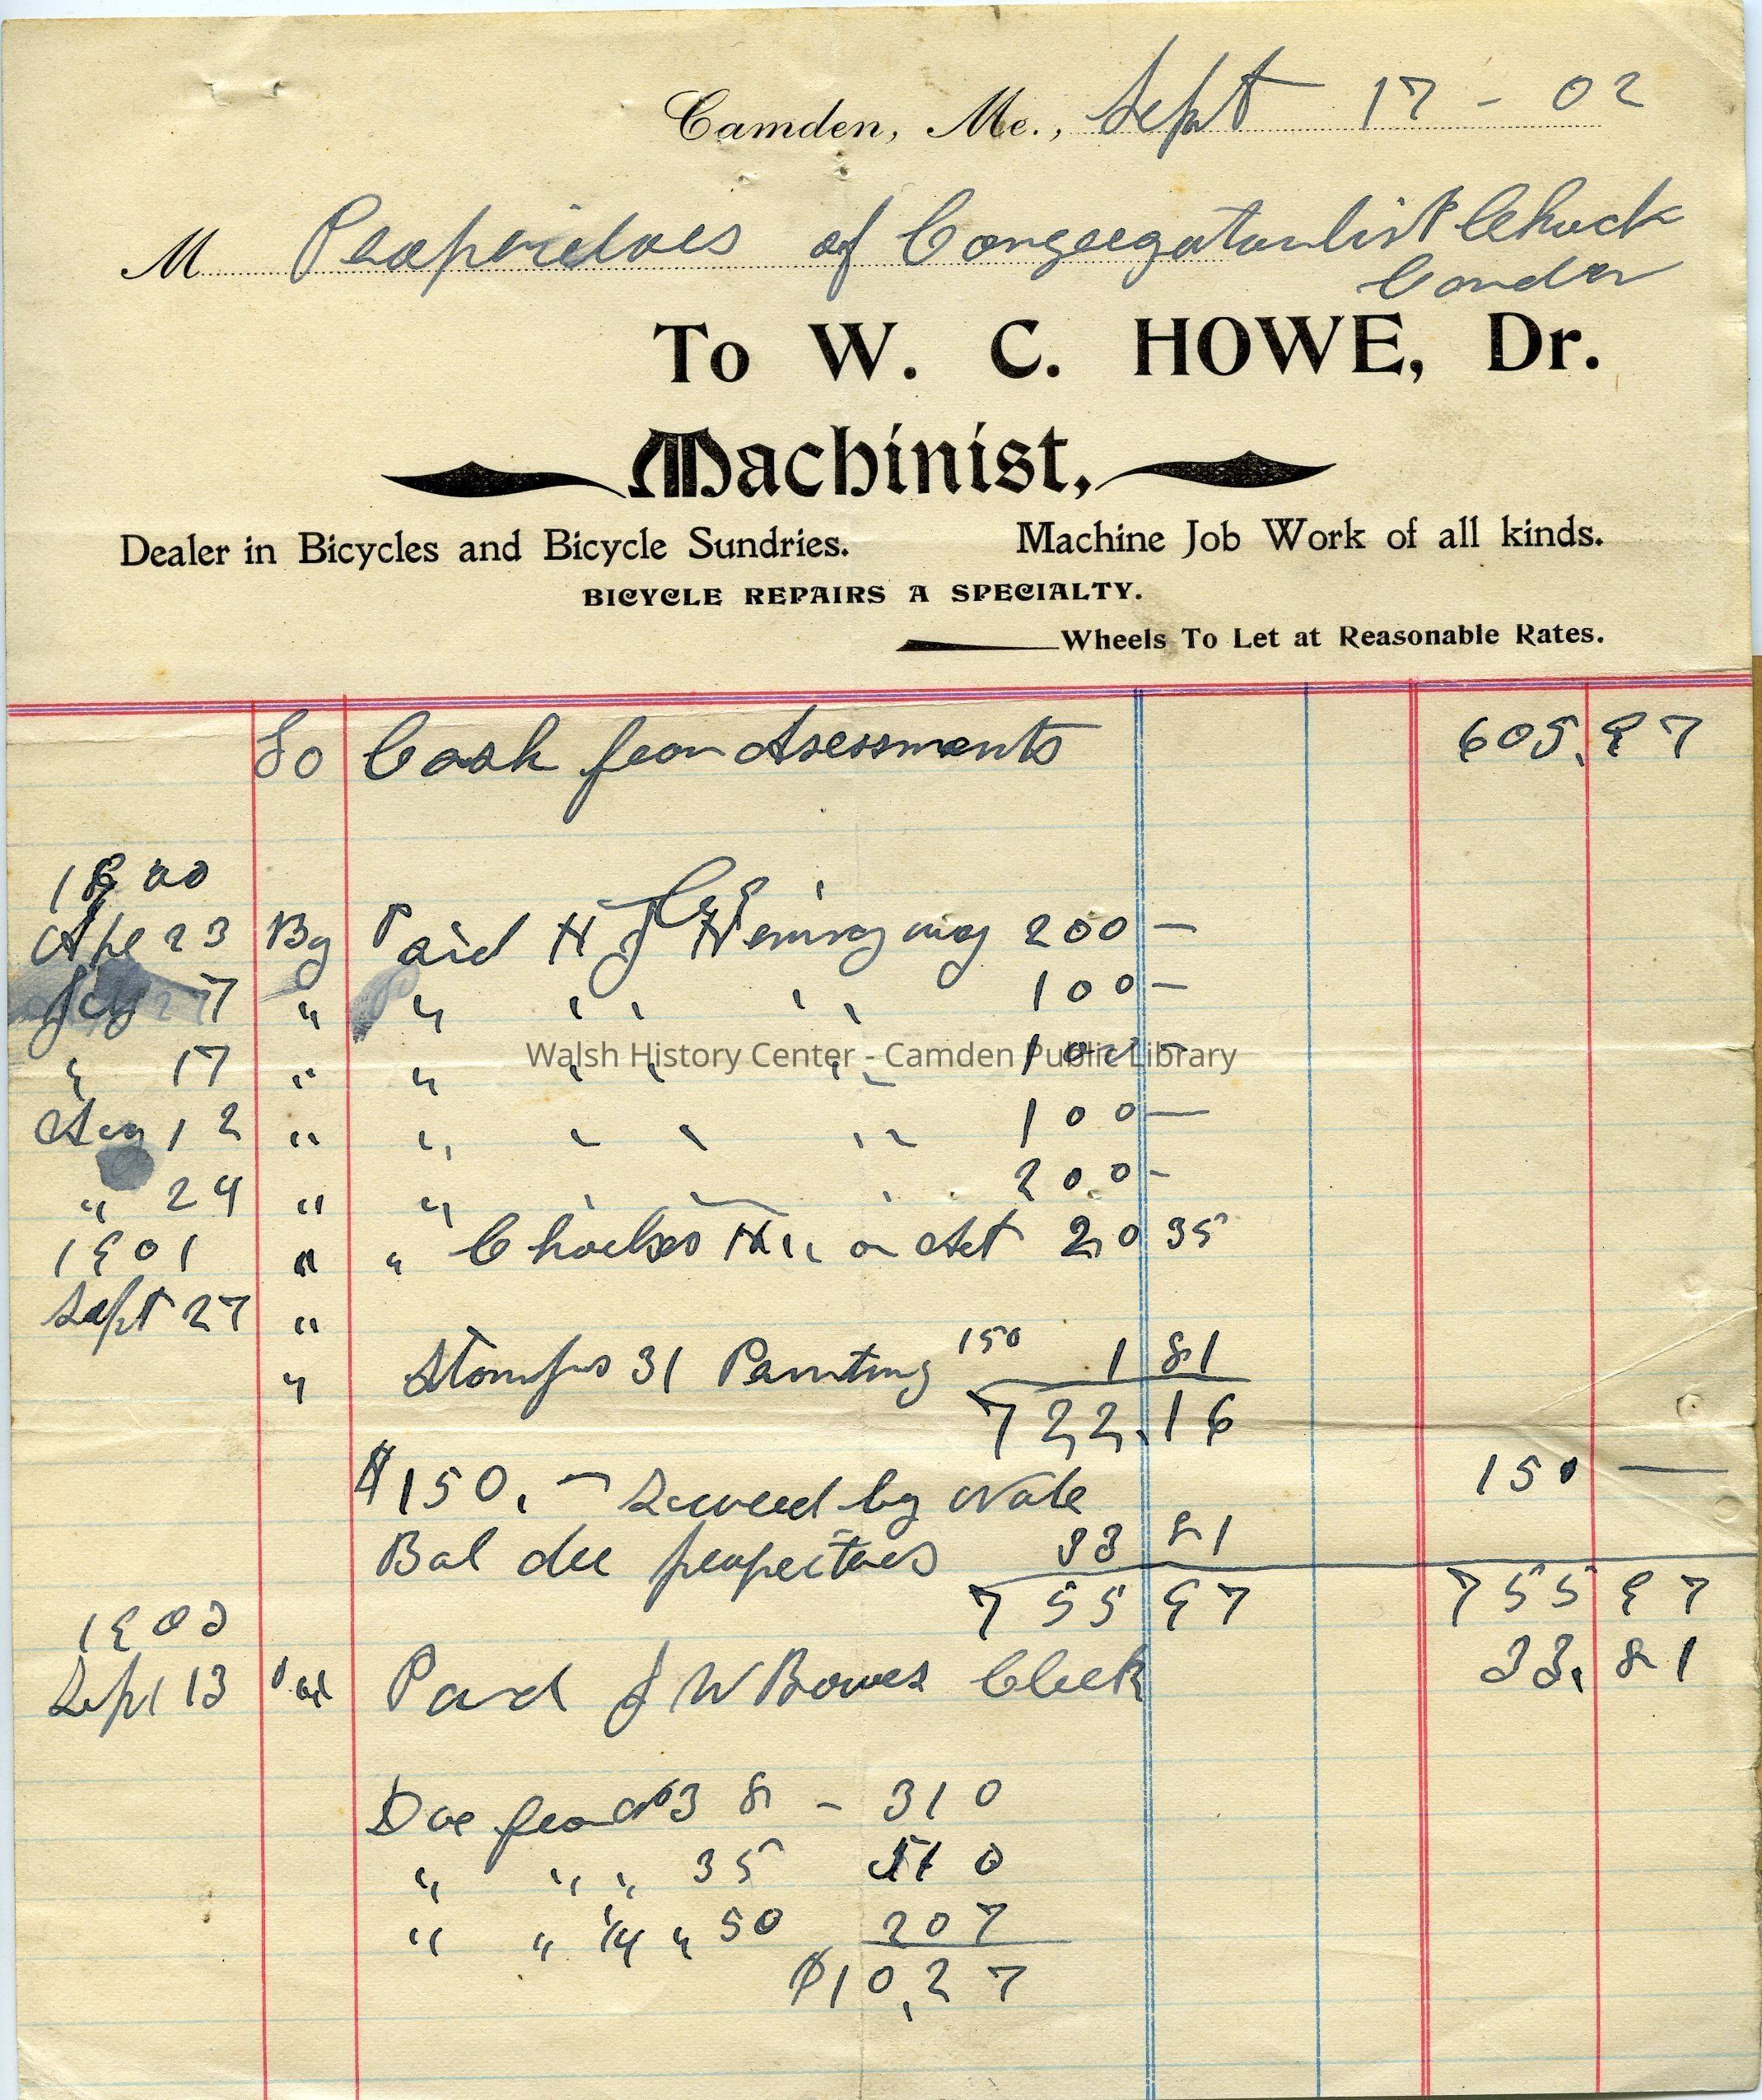 Camden, Me., Sept 17 - 02
M Propriators of Congregatonlist Chuch
Camden
To W. C. HOWE, Dr.
Machinist,
Dealer in Bicycles and Bicycle Sundries. Machine Job Work of all kinds.
BICYCLE REPAIRS A SPECIALTY.
Wheels To Let at Reasonable Rates.
To Cash from Asessments 605.97
1900
Apr 23 By Paid H J Hemingway 200 —
July 7 " " " " 100 —
" 17 " " " " 100 —
Aug 12 " " " " 100 —
" 24 " " " " 200 -
1901 " " on Act 20 35
Sept 27 "
" Stamps 31 Painting 150 1 81
722.16
$150. — Secured by Note 150 —
Bal due propritors 33 81
755 97 755 97
1902
Sept 13 Paid J W Bowes Clerk 33.81
Due from No 38 - 310
" " " 35 510
" " 1/4 " 50 207
$10.27
Walsh History Center - Camden Public Library